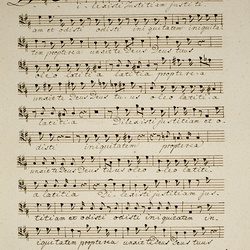 Dilexisti Justitiam justiti
am et odisti odisti iniquitatem iniquita
tem propterea unxit te Deus Deus tuus
oleo laetitia laetitia propterea
unxit te Deus Deus tu us oleo laetiti a
laetitia Dilexisti justitiam et o
disti iniquitatem propterea
unxit te Deus Deus tuus oleo oleo laetiti
a laetitia Dilexisti justitiam jus
titiam et odisti odisti iniquitatem in
iquitatem propterea unxit te Deus Deus tuus